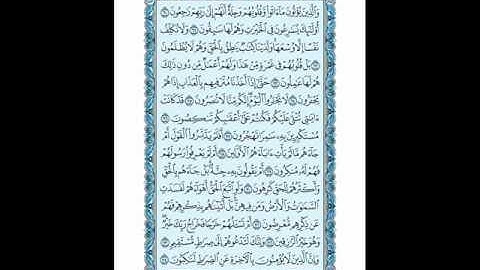 وَالَّذِينَ يُؤْتُونَ مَا ءَاتَوا۟ وَّقُلُوبُهُمْ وَجِلَةٌ أَنَّهُمْ إِلَىٰ رَبِّهِمْ رَٰجِعُونَ ۝٦٠
أُو۟لَٰٓئِكَ يُسَٰرِعُونَ فِى ٱلْخَيْرَٰتِ وَهُمْ لَهَا سَٰبِقُونَ ۝٦١ وَلَا نُكَلِّفُ
نَفْسًا إِلَّا وُسْعَهَا وَلَدَيْنَا كِتَٰبٌ يَنطِقُ بِٱلْحَقِّ وَهُمْ لَا يُظْلَمُونَ
۝٦٢ بَلْ قُلُوبُهُمْ فِى غَمْرَةٍ مِّنْ هَٰذَا وَلَهُمْ أَعْمَٰلٌ مِّن دُونِ ذَٰلِكَ
هُمْ لَهَا عَٰمِلُونَ ۝٦٣ حَتَّىٰٓ إِذَآ أَخَذْنَا مُتْرَفِيهِم بِٱلْعَذَابِ إِذَا هُمْ
يَجْـَٔرُونَ ۝٦٤ لَا تَجْـَٔرُوا۟ ٱلْيَوْمَ إِنَّكُم مِّنَّا لَا تُنصَرُونَ ۝٦٥ قَدْ كَانَتْ
ءَايَٰتِى تُتْلَىٰ عَلَيْكُمْ فَكُنتُمْ عَلَىٰٓ أَعْقَٰبِكُمْ تَنكِصُونَ ۝٦٦
مُسْتَكْبِرِينَ بِهِۦ سَٰمِرًا تَهْجُرُونَ ۝٦٧ أَفَلَمْ يَدَّبَّرُوا۟ ٱلْقَوْلَ أَمْ
جَآءَهُم مَّا لَمْ يَأْتِ ءَابَآءَهُمُ ٱلْأَوَّلِينَ ۝٦٨ أَمْ لَمْ يَعْرِفُوا۟ رَسُولَهُمْ
فَهُمْ لَهُۥ مُنكِرُونَ ۝٦٩ أَمْ يَقُولُونَ بِهِۦ جِنَّةٌۢ بَلْ جَآءَهُم بِٱلْحَقِّ
وَأَكْثَرُهُمْ لِلْحَقِّ كَٰرِهُونَ ۝٧٠ وَلَوِ ٱتَّبَعَ ٱلْحَقُّ أَهْوَآءَهُمْ لَفَسَدَتِ
ٱلسَّمَٰوَٰتُ وَٱلْأَرْضُ وَمَن فِيهِنَّ بَلْ أَتَيْنَٰهُم بِذِكْرِهِمْ فَهُمْ
عَن ذِكْرِهِم مُّعْرِضُونَ ۝٧١ أَمْ تَسْـَٔلُهُمْ خَرْجًا فَخَرَاجُ رَبِّكَ خَيْرٌ
وَهُوَ خَيْرُ ٱلرَّٰزِقِينَ ۝٧٢ وَإِنَّكَ لَتَدْعُوهُمْ إِلَىٰ صِرَٰطٍ مُّسْتَقِيمٍ ۝٧٣
وَإِنَّ ٱلَّذِينَ لَا يُؤْمِنُونَ بِٱلْءَاخِرَةِ عَنِ ٱلصِّرَٰطِ لَنَٰكِبُونَ ۝٧٤